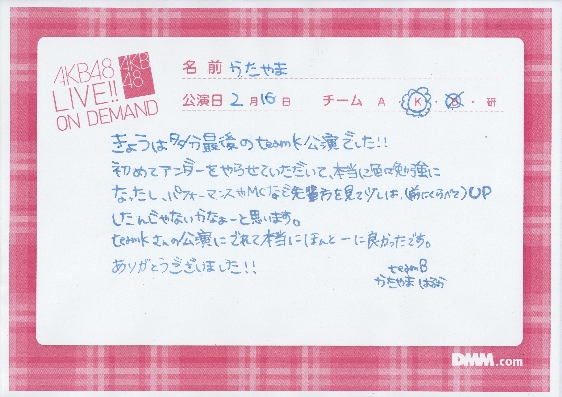 AKB48
LIVE!!
ON DEMAND
AKB
48
名前 かたやま
公演日 2月16日 チーム A・K・B・研
きょうは多分最後のteamK公演でした!!
初めてアンダーをやらせていただいて、本当に勉強に
なったし、パフォーマンスやMCなど先輩方を見て少しは、(前にくらべて)UP
したんじゃないかなぁーと思います。
teamkさんの公演にでれて本当にほんとーに良かったです。
ありがとうございました!!
teamB
かたやま はるか
DMM.com